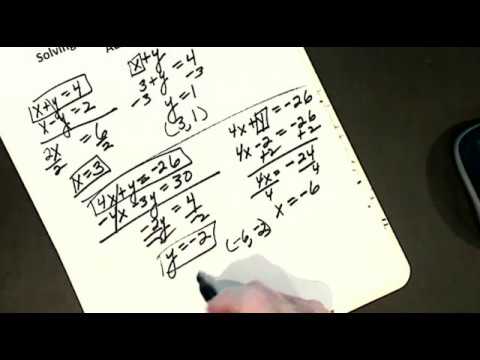 Solving
x+y=4
x-y=2
2x = 6
2 2
x=3
x+y
3+y=4
-3 -3
y=1
(3,1)
4x+y=-26
-4x-3y=30
-2y=4
-2 -2
y=-2
4x+y=-26
4x-2=-26
+2 +2
4x=-24
4 4
x=-6
(-6,-2)